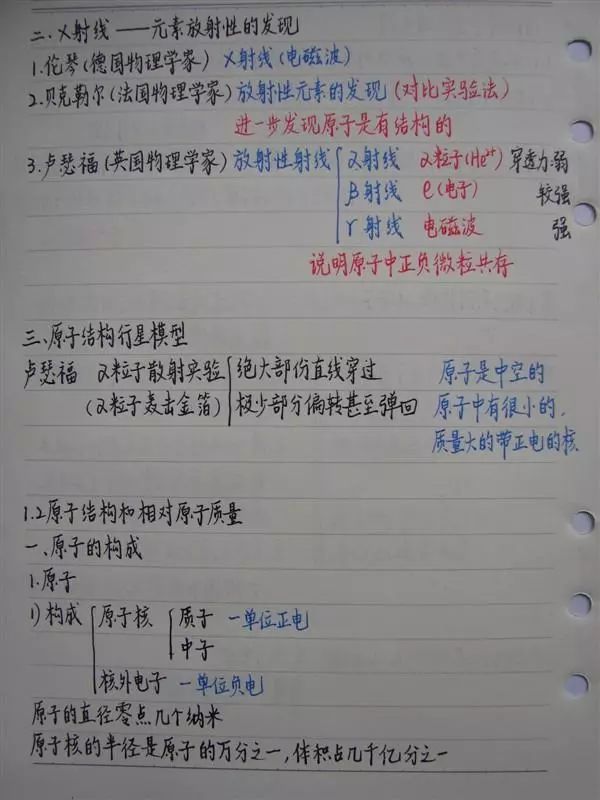 二.X射线——元素放射性的发现
1.伦琴(德国物理学家) X射线(电磁波)
2.贝克勒尔(法国物理学家)放射性元素的发现(对比实验法)
进一步发现原子是有结构的
3.卢瑟福(英国物理学家)放射性射线 α射线 α粒子(He²⁺) 穿透力:弱
β射线 e(电子) 较强
γ射线 电磁波 强
说明原子中正负微粒共存
三.原子结构行星模型
卢瑟福 α粒子散射实验 绝大部份直线穿过 原子是中空的
(α粒子轰击金箔) 极少部分偏转甚至弹回 原子中有很小的,
质量大的带正电的核
1.2原子结构和相对原子质量
一.原子的构成
1.原子
1)构成 原子核 质子 一单位正电
中子
核外电子 一单位负电
原子的直径零点几个纳米
原子核的半径是原子的万分之一,体积占几千亿分之一